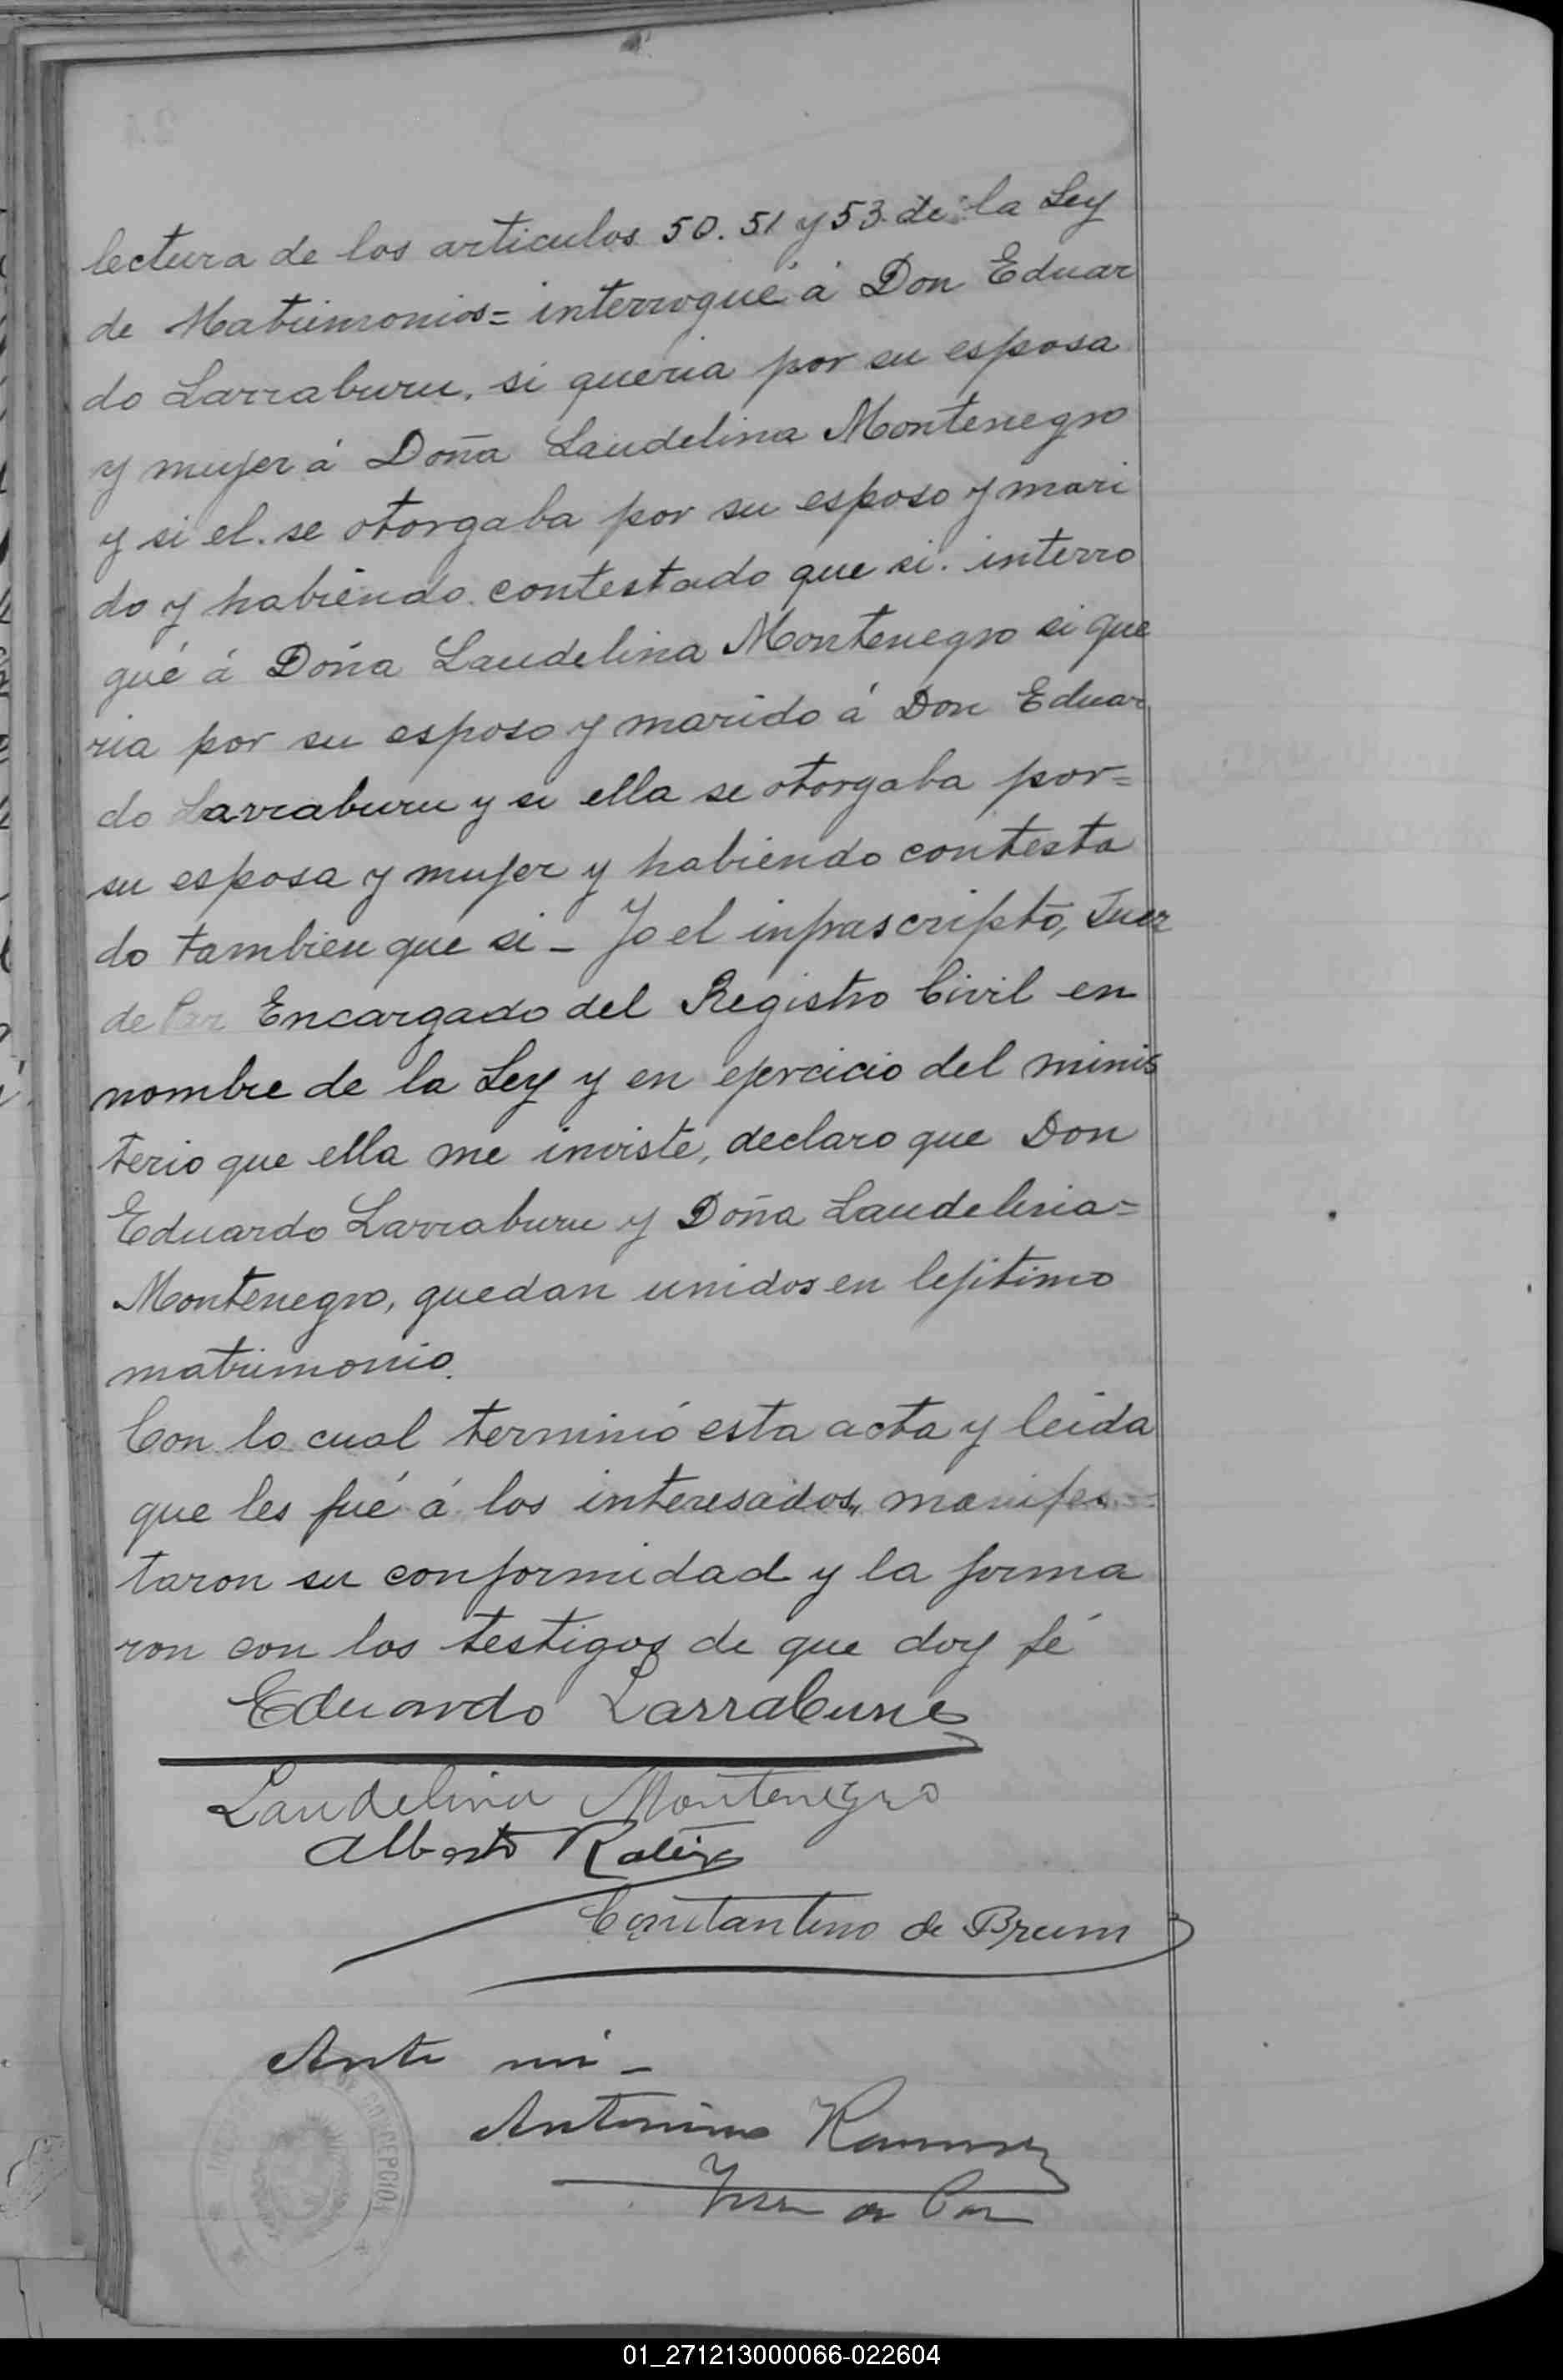 lectura de los articulos 50. 51 y 53 de la Ley
de Matrimonios= interrogué á Don Eduar
do Larraburu, si queria por su esposa
y mujer á Doña Laudelina Montenegro
y si el se otorgaba por su esposo y mari
do y habiendo contestado que si. interro
gué á Doña Laudelina Montenegro si que
ria por su esposo y marido á Don Eduar
do Larraburu y si ella se otorgaba por=
su esposa y mujer y habiendo contesta
do tambien que si - Yo el infrascripto, Juez
de Paz Encargado del Registro Civil en
nombre de la Ley y en ejercicio del minis
terio que ella me inviste, declaro que Don
Eduardo Larraburu y Doña Laudelina=
Montenegro, quedan unidos en lejitimo
matrimonio.
Con lo cual terminó esta acta y leida
que les fué á los interesados, manifes=
taron su conformidad y la firma
ron con los testigos de que doy fé
Eduardo Larraburu
Laudelina Montenegro
Alberto
Constantino de Brum
Ante mi -
Antonino Ramirez
Juez de Paz
CONCEPCION
01_271213000066-022604